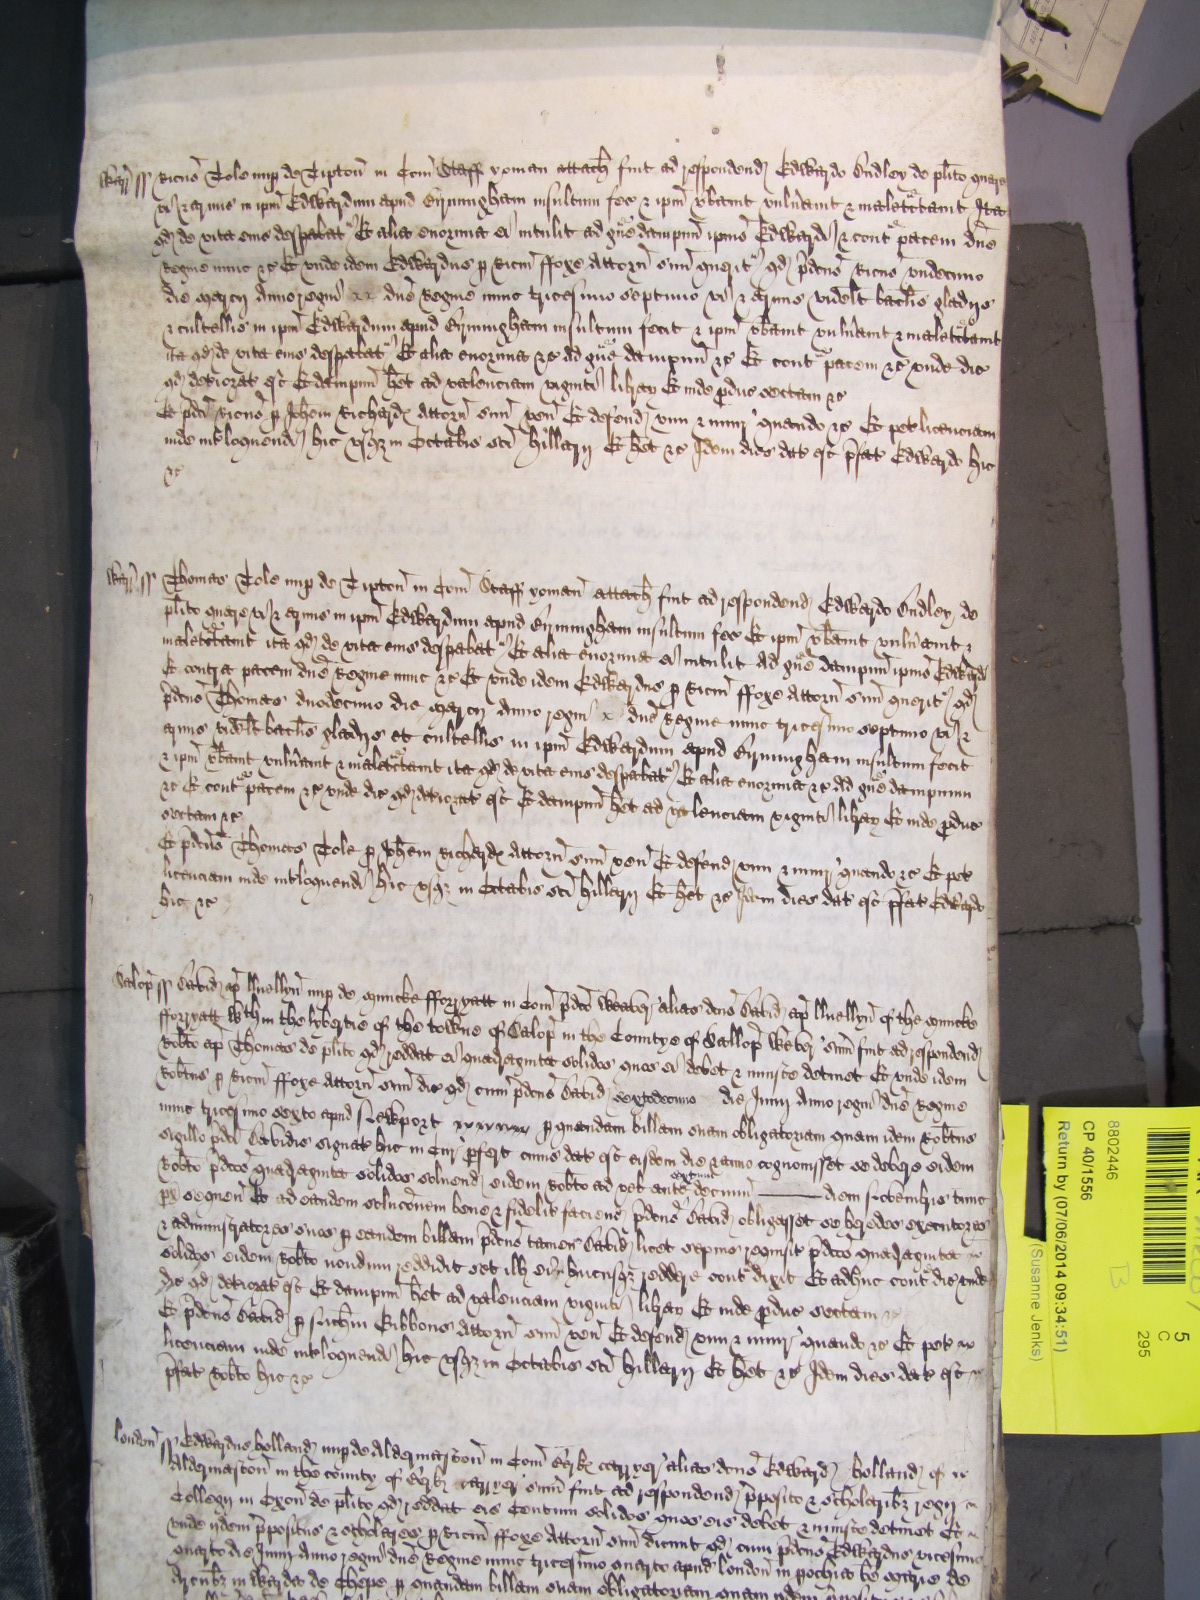 Warr ss Ricus Tole nup de Tipton in Com Staff yoman attach fuit ad respondend Edwardo Ondley de plito quare
vi & armis in ipm Edwardum apud Byrmingham insultum fec & ipm vbavit vulnavit & maletctavit Ita
qd de vita eius despabat Et alia enormia ei intulit ad gue dampnm ipius Edwardi & cont pacem dne
Regine nunc &c Et unde idem Edwardus p Ricm ffoxe Attorn suu querit qd pdcus Ricus undecimo
die marcii Anno regni dne Regine nunc tricesimo septimo vi & armis videlt baclis gladijs
& cultellis in ipm Edwardum apud Byrmingham insultum fecit & ipm vbavit vulnavit & maletctavit
ita qd de vita eius despabat Et alia enormia &c ad gue dampnm &c Et cont pacem &c unde dic
qd deteriorat est Et dampnm het ad valenciam viginti librar Et inde pduc sectam &c
Et pdcus Ricus p Johem Richards Attorn suu ven Et defend vim & iniur quando &c Et pet licenciam
inde intloquendi hic usqz in Octabis sci Hillarii Et het &c Idem dies dat est pfat Edwardo hic
&c
Warr ss Thomas Tole nup de Tipton in Com Staff yoman attach fuit ad respondend Edwardo Ondley de
plito quare vi & armis in ipm Edwardum apud Byrmingham insultum fec Et ipm vbavit vulnavit &
maletctavit ita qd de vita eius despabat Et alia enormia ei intulit Ad gue dampnm ipius Edwardi
Et contra pacem dne Regine nunc &c Et unde idem Edwardus p Ricm ffoxe Attorn suu querit qd
pdcus Thomas duodecimo die marcii Anno regni dne Regine nunc tricesimo septimo vi &
armis videlt baclis gladijs et cultellis in ipm Edwardum apud Byrmingham insultum fecit
& ipm vbavit vulnavit & maletctavit ita qd de vita eius despabat Et alia enormia &c Ad gue dampnum
&c Et cont pacem &c unde dic qd deteriorat est Et dampnm het ad valenciam viginti librar Et inde pduc
sectam &c
Et pdcus Thomas Tole p Johem Richards Attorn suu ven Et defend vim & iniur quando &c Et pet
licenciam inde intloquendi hic usqz in Octabis sci Hillarii Et het &c Idem dies dat est pfat Edwardo
hic &c
Salop ss David ap lluellyn nup de muncke fforyatt in Com pdco Weaver alias dcus David ap lluellyn of the muncke
fforyatt wthin the lybertie of the towne of Salop in the Countye of Sallop Weber sum fuit ad respondend
Robto ap Thomas de plito qd reddat ei quadraginta solidos quos ei debet & iniuste detinet Et unde idem
Robtus p Ricm ffoxe Attorn suu dic qd cum pdcus David sextodecimo die Junii Anno regni dne Regine
nunc tricesimo sexto apud Newport p quandam billam suam obligatoriam quam idem Robtus
sigillo pdci Davidis signat hic in Cur pfert cuius dat est eisdem die & anno cognovisset se debere eidem
Robto pdcos quadraginta solidos solvend eidem Robto ad vel ante decimu diem Novembris tunc
px sequen Et ad eandem soluconem bene & fidelit faciend pdcus David obligasset se heredes executores
& administratores suos p eandem billam pdcus tamen David licet sepius requisit pdcos quadraginta
solidos eidem Robto nondum reddidit set ill ei hucusqz reddere cont dixit Et adhuc cont dic unde
dic qd deteriorat est Et dampnm het ad valenciam viginti librar Et inde pduc sectam &c
Et pdcus David p Gibbons Attorn suu ven Et defend vim & iniur quando &c Et pet
licenciam inde intloquendi hic usqz in Octabis sci Hillarii Et het &c Idem dies dat est
pfat Robto hic &c
London ss Edwardus Holland nup de Aldermaston in Com Berk carryer alias dcus Edward Holland of
Aldermaston in the county of Berk carryer sum fuit ad respondend pposito & scholaribz regii
Collegii in Exon de plito qd reddat eis Centum solidos quos eis debet & iniuste detinet Et
unde ijdem ppositus & scholares p Ricm ffoxe Attorn suu dicunt qd cum pdcus Edwardus vicesimo
quarto die Junii Anno regni dne Regine nunc tricesimo quarto apud London in pochia be marie de
Arcubz in Warda de Chepe p quandam billam suam obligatoriam quam ijdem
8802446
CP 40/1556
Return by (07/06/2014 09:34:51)
(Susanne Jenks)
B
5
C
295